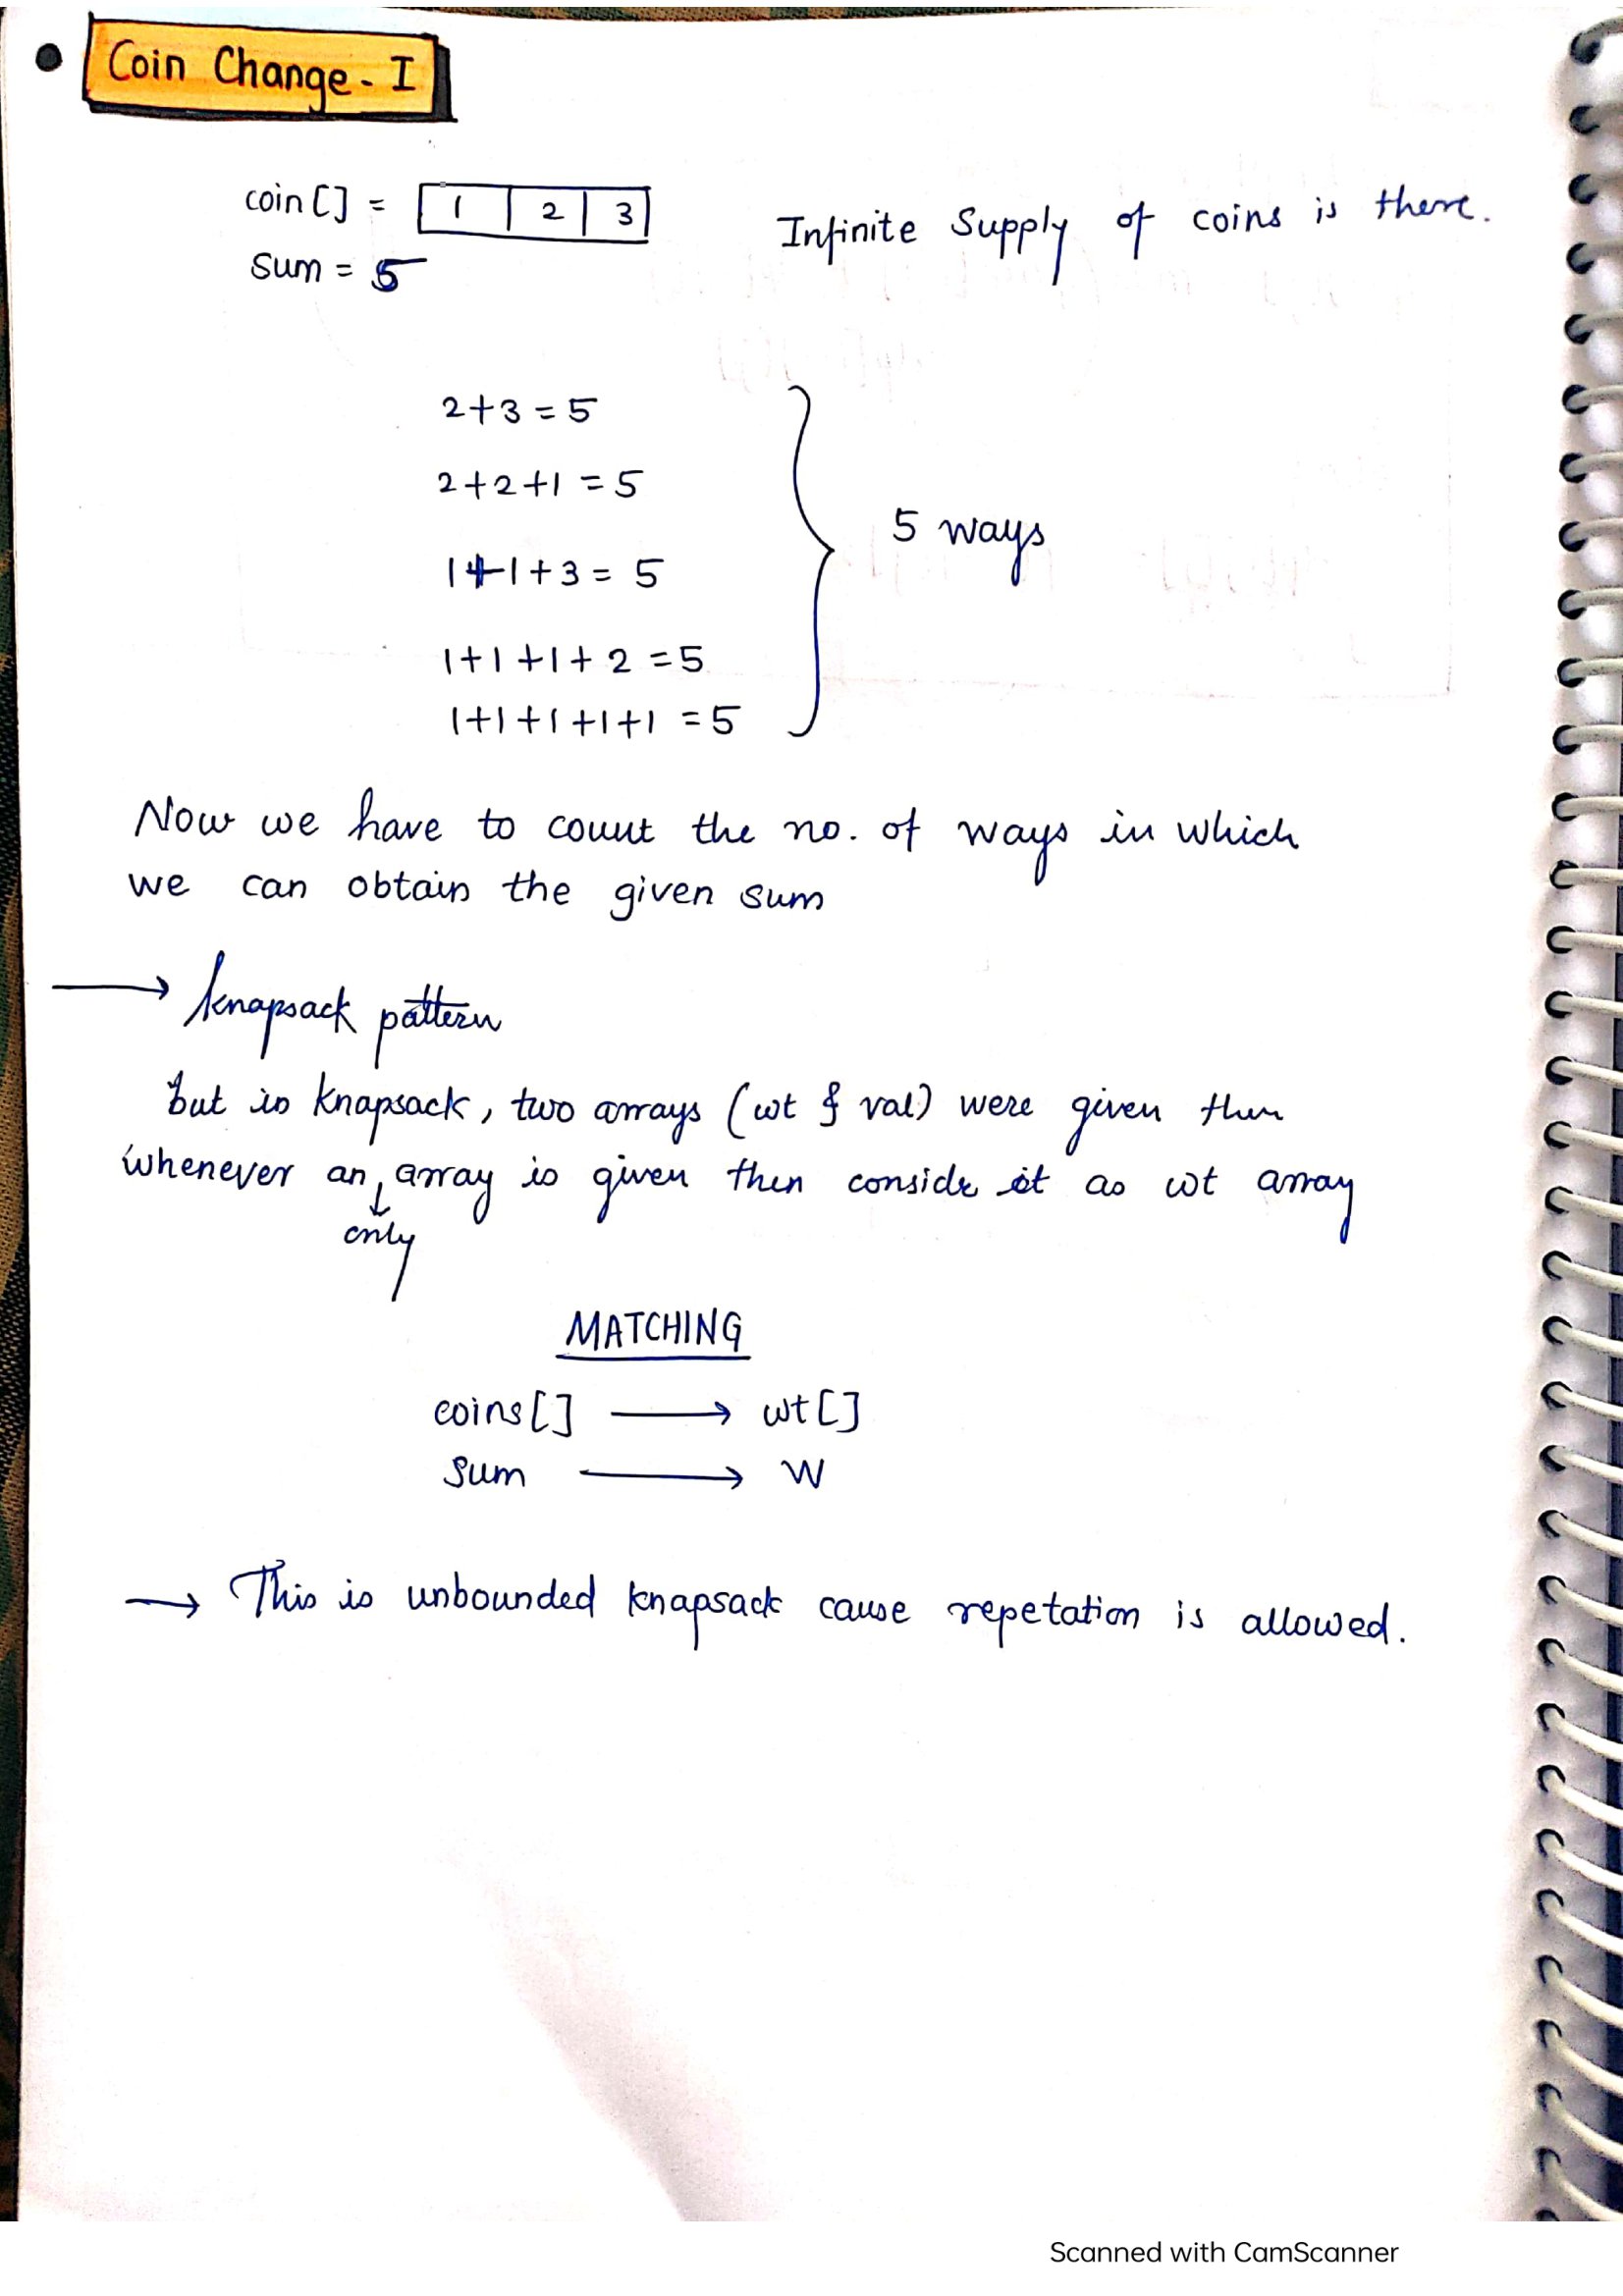 Coin Change - I
coin[] = 1 2 3
Infinite Supply of coins is there.
Sum = 5
2+3 = 5
2+2+1 = 5
1+1+3 = 5
1+1+1+2 = 5
1+1+1+1+1 = 5
5 ways
Now we have to count the no. of ways in which
we can obtain the given sum
→ knapsack pattern
but in knapsack, two arrays (wt & val) were given then
whenever an array is given then consider it as wt array
only
MATCHING
coins[] → wt[]
Sum → W
→ This is unbounded knapsack cause repetation is allowed.
Scanned with CamScanner